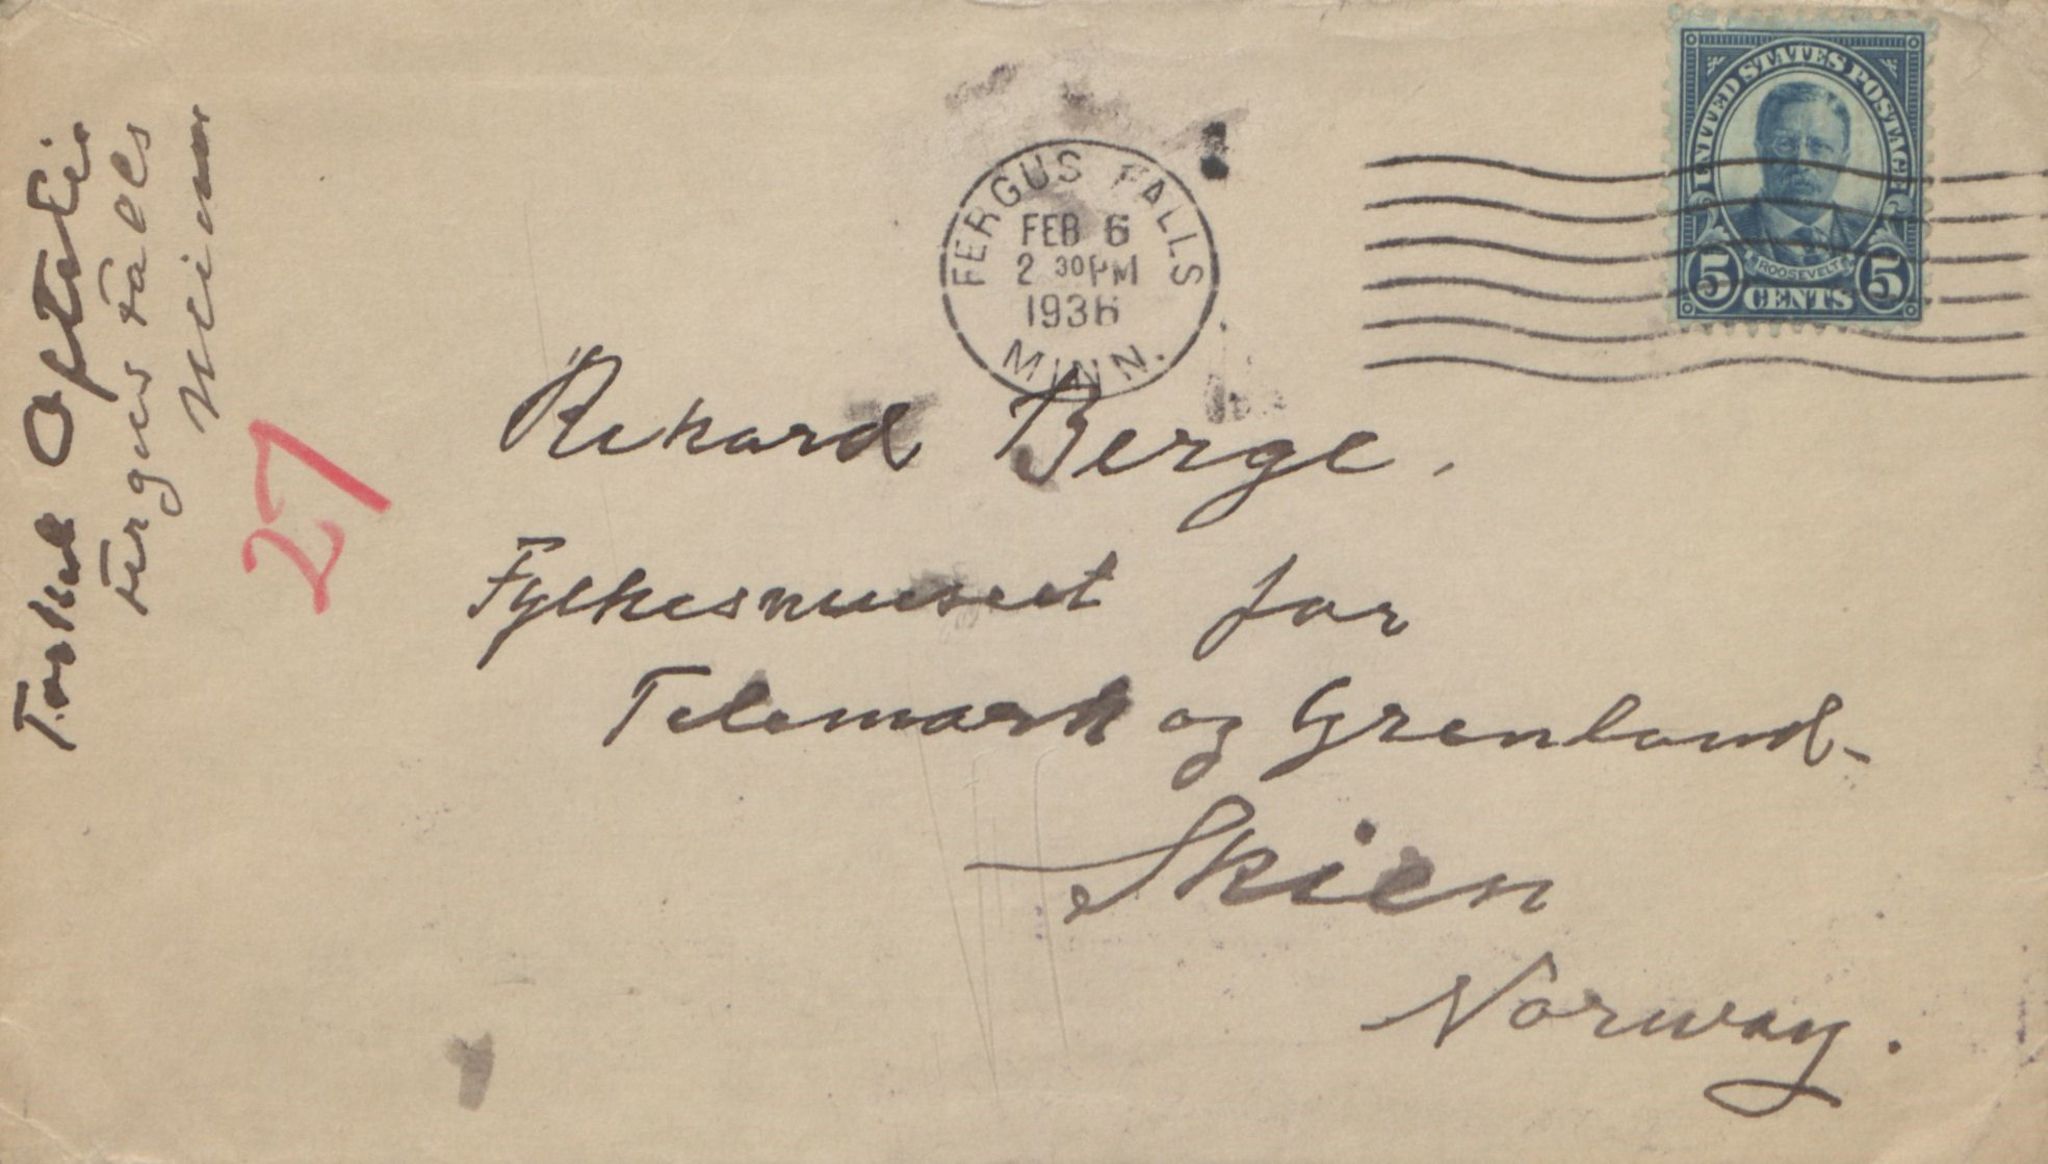 Torkel Oftelie
Fergus Falls
Minn
27
FERGUS FALLS
FEB 6
2 30 PM
1936
MINN.
UNITED STATES POSTAGE
ROOSEVELT
5 CENTS 5
Rikard Berge.
Fylkesmuseet for
Telemark og Grenland-
Skien
Norway.